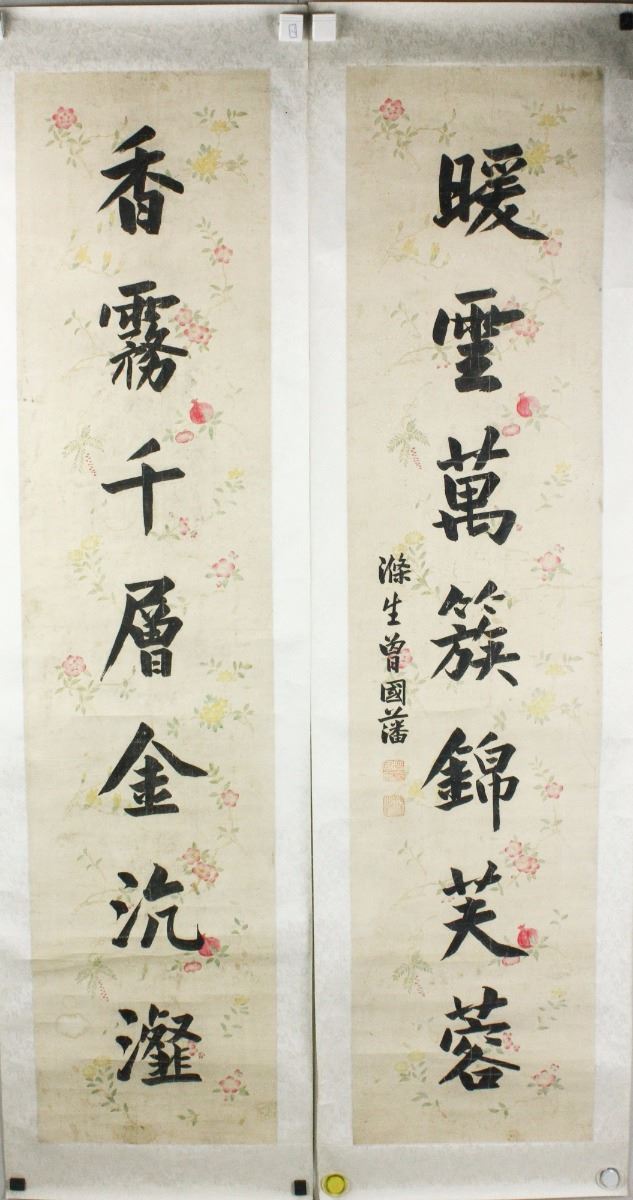 香霧千層金沆瀣
暖雲萬簇錦芙蓉
滌生曾國藩